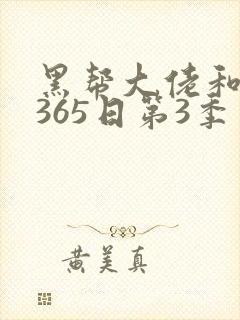 黑帮大佬和
365日第3季
黄美真